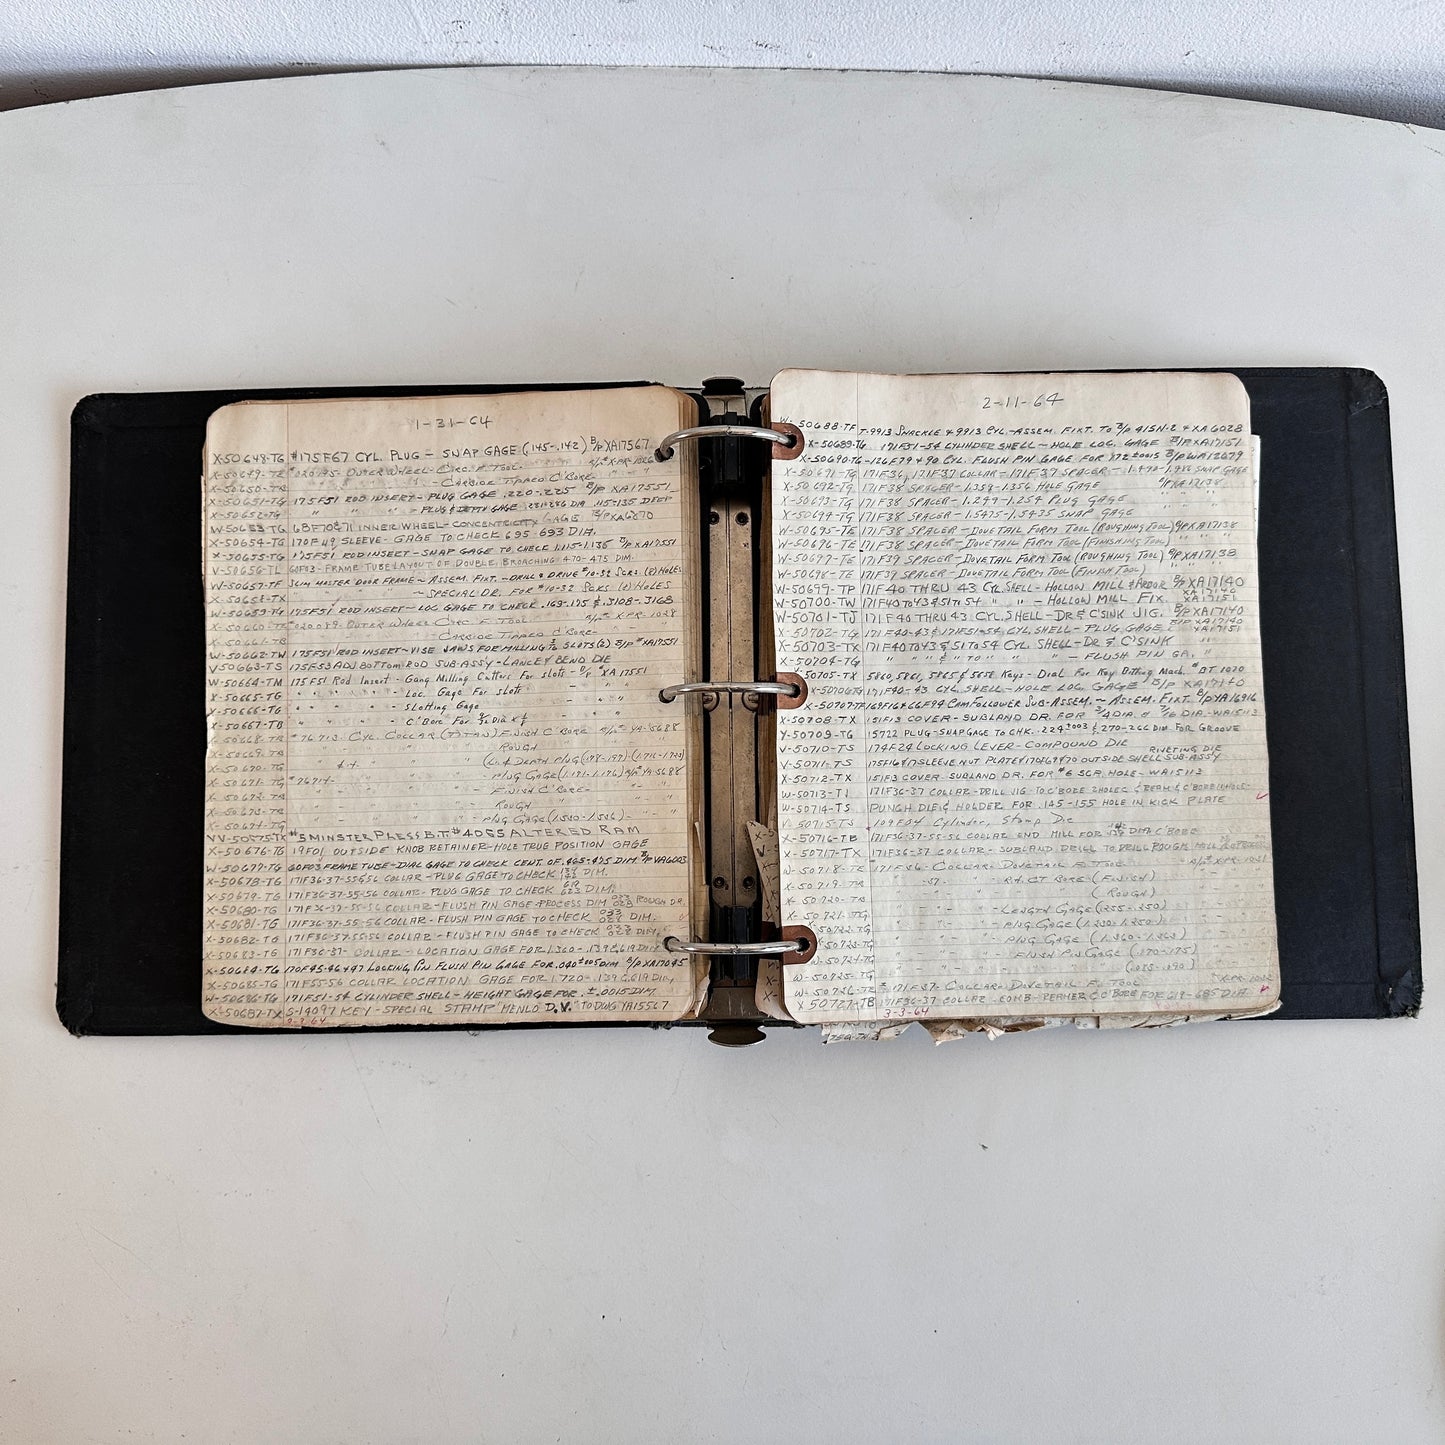 1-31-64
X-50648-TG #175F67 CYL. PLUG - SNAP GAGE (.145-.142) B/P XA17567
X-50649-TE #020195-OUTER WHEEL-CIRC. F. TOOL
X-50650-TB " - CARBIDE TIPPED C'BORE
X-50651-TG 175F51 ROD INSERT-PLUG GAGE .220-.225 B/P XA17551
X-50652-TG " " " - PLUG & DEPTH GAGE .281-.286 DIA .115-.135 DEEP
W-50653-TG 68F70&71 INNER WHEEL-CONCENTRICITY GAGE B/P XA6870
X-50654-TG 170F49 SLEEVE - GAGE TO CHECK .695-.693 DIA.
X-50655-TG 175F51 ROD INSERT-SNAP GAGE TO CHECK 1.115-1.135 B/P XA17551
V-50656-TL 60F03-FRAME TUBE LAYOUT OF DOUBLE BROACHING .470-.475 DIM.
W-50657-TF SLIM MASTER DOOR FRAME - ASSEM. FIXT. -DRILL & DRIVE #10-32 SCRS. (2) HOLES
X-50658-TX " " " " - SPECIAL DR. FOR #10-32 SCRS (2) HOLES
W-50659-TG 175F51 ROD INSERT-LOC GAGE TO CHECK .169-.175 & .3108-.3168
X-50660-TE #020089-OUTER WHEEL CIRC F. TOOL B/P# XPR-1028
X-50661-TB CARBIDE TIPPED C'BORE-
W-50662-TW 175F51 ROD INSERT-VISE JAWS FOR MILLING SLOTS (2) B/P #XA17551
V-50663-TS 175F53 ADJ BOTTOM ROD SUB-ASSY-LANCE & BEND DIE
W-50664-TM 175F51 Rod Insert - Gang Milling Cutters for slots - B/P #XA17551
X-50665-TG " " " - Loc. Gage For slots - " "
X-50666-TG " " " - Slotting Gage - " "
X-50667-TB " " " - C'Bore For DIA - " "
X-50668-TB #76713-CYL. COLLAR (TITAN) FINISH C'BORE B/P# YA-5688
X-50669-TB " " " ROUGH " "
X-50670-TG DEPTH PLUG
X-50671-TG #76714- " " - PLUG GAGE (1.171-1.176) B/P# YA-5688
X-50672-TB " " " FINISH C'BORE- " "
X-50673-TB " " " ROUGH - " "
X-50674-TG " " " PLUG GAGE
W-50675-TX #5 MINSTER PRESS B.T. #4085 ALTERED RAM
X-50676-TG 19F01 OUTSIDE KNOB RETAINER-HOLE TRUE POSITION GAGE
W-50677-TG 60F03 FRAME TUBE-DIAL GAGE TO CHECK CENT. OF .465-.475 DIM B/P VA6003
X-50678-TG 171F36-37-55&56 COLLAR - PLUG GAGE TO CHECK DIM.
X-50679-TG 171F36-37-55-56 COLLAR- PLUG GAGE TO CHECK DIM.
X-50680-TG 171F36-37-55-56 COLLAR-FLUSH PIN GAGE-PROCESS DIM ROUGH DR.
X-50681-TG 171F36-37-55-56 COLLAR - FLUSH PIN GAGE TO CHECK DIM.
X-50682-TG 171F36-37-55-56 COLLAR - FLUSH PIN GAGE TO CHECK DIM.
X-50683-TG 171F36-37- COLLAR - LOCATION GAGE FOR 1.360-.139 & .619 DIM
X-50684-TG 170F45-46&47 LOCKING PIN FLUSH PIN GAGE FOR .040 ±.005 DIM B/P XA17045
X-50685-TG 171F55-56 COLLAR LOCATION GAGE FOR 1.720-.139 & .619 DIM.
W-50686-TG 171F51-54 CYLINDER SHELL - HEIGHT GAGE FOR ±.0015 DIM.
X-50687-TX S-14097 KEY-SPECIAL STAMP "MENLO D.V." TO DWG YA15567
2-3-64
2-11-64
W-50688-TF T-9913 SHACKLE & 9913 CYL.-ASSEM. FIXT. TO B/P 415N-2 & XA6028
X-50689-TG 171F51-54 CYLINDER SHELL - HOLE LOC. GAGE B/P XA17151
X-50690-TG-126F79&90 CYL. FLUSH PIN GAGE FOR .172 ±.0015 B/P WA12679
X-50691-TG 171F36, 171F37 COLLAR-171F37 SPACER - 1.490-1.486 SNAP GAGE
X-50692-TG 171F38 SPACER-1.359-1.356 HOLE GAGE B/P XA17138
X-50693-TG 171F38 SPACER-1.249-1.254 PLUG GAGE " "
X-50694-TG 171F38 SPACER-1.5475-1.5435 SNAP GAGE
W-50695-TE 171F38 SPACER-DOVETAIL FORM TOOL (ROUGHING TOOL) B/P XA17138
W-50696-TE 171F38 SPACER-DOVETAIL FORM TOOL (FINISHING TOOL) " " "
W-50697-TE 171F39 SPACER-DOVETAIL FORM TOOL (ROUGHING TOOL) B/P XA17138
W-50698-TE 171F39 SPACER-DOVETAIL FORM TOOL (FINISH TOOL)
W-50699-TP 171F40 THRU 43 CYL SHELL-HOLLOW MILL & ARBOR B/P XA17140
W-50700-TW 171F40 TO 43 & 51 TO 54 " " - HOLLOW MILL FIX. XA17140 XA17151
W-50701-TJ 171F40 THRU 43 CYL. SHELL-DR & C'SINK JIG. B/P XA17140
X-50702-TG 171F40-43 & 171F51-54 CYL. SHELL-PLUG GAGE B/P XA17140 XA17151
X-50703-TX 171F40 TO 43 & 51 TO 54 CYL SHELL-DR & C'SINK "
X-50704-TG " " " & " TO " " " - FLUSH PIN GA. "
X-50705-TX 5860, 5861, 5865 & 5658 Keys - Dial For Key Bitting Mach. #DT 1070
X-50706-TG 171F40-43 CYL SHELL-HOLE LOC. GAGE B/P XA17140
X-50707-TF 169F16&66F94 CAM FOLLOWER SUB-ASSEM.-ASSEM. FIXT. B/P YA16916
X-50708-TX 151F13 COVER-SUBLAND DR. FOR 3/4 DIA. & 7/16 DIA-WA15113
Y-50709-TG 15722 PLUG-SNAP GAGE TO CHK. .224 ±.003 & .270-.266 DIM FOR GROOVE
V-50710-TS 174F24 LOCKING LEVER-COMPOUND DIE
V-50711-TS 175F16&17 SLEEVE NUT PLATE & 170F69&70 OUTSIDE SHELL SUB-ASSY RIVETING DIE
X-50712-TX 151F3 COVER-SUBLAND DR. FOR #6 SCR. HOLE-WA15113
W-50713-TJ 171F36-37 COLLAR-DRILL JIG TO C'BORE 2 HOLES & REAM & C'BORE 1 HOLE-
W-50714-TS PUNCH DIE & HOLDER FOR .145-.155 HOLE IN KICK PLATE
V-50715-TS 109F04 Cylinder, Stamp Die
X-50716-TB 171F36-37-55-56 COLLAR END MILL FOR DIA C'BORE
X-50717-TX 171F36-37 COLLAR-SUBLAND DRILL TO DRILL ROUGH HOLE
W-50718-TE #171F56- COLLAR-DOVETAIL F. TOOL B/P# XPR-1051
X-50719-TB " -37- " - R.H. CT BORE (FINISH) " "
X-50720-TB " " " " (ROUGH) " "
X-50721-TG " " " -LENGTH GAGE (.255-.250) " "
X-50722-TG " " " -PLUG GAGE " "
X-50723-TG " " " PLUG GAGE " "
X-50724-TG " " " -FLUSH PIN GAGE (.170-.175) " "
W-50725-TG " " " "
W-50726-TE #171F37-COLLAR-DOVETAIL F. TOOL
X-50727-TB 171F36-37 COLLAR-COMB-REAMER & C'BORE FOR .618-.685 DIA.
3-3-64